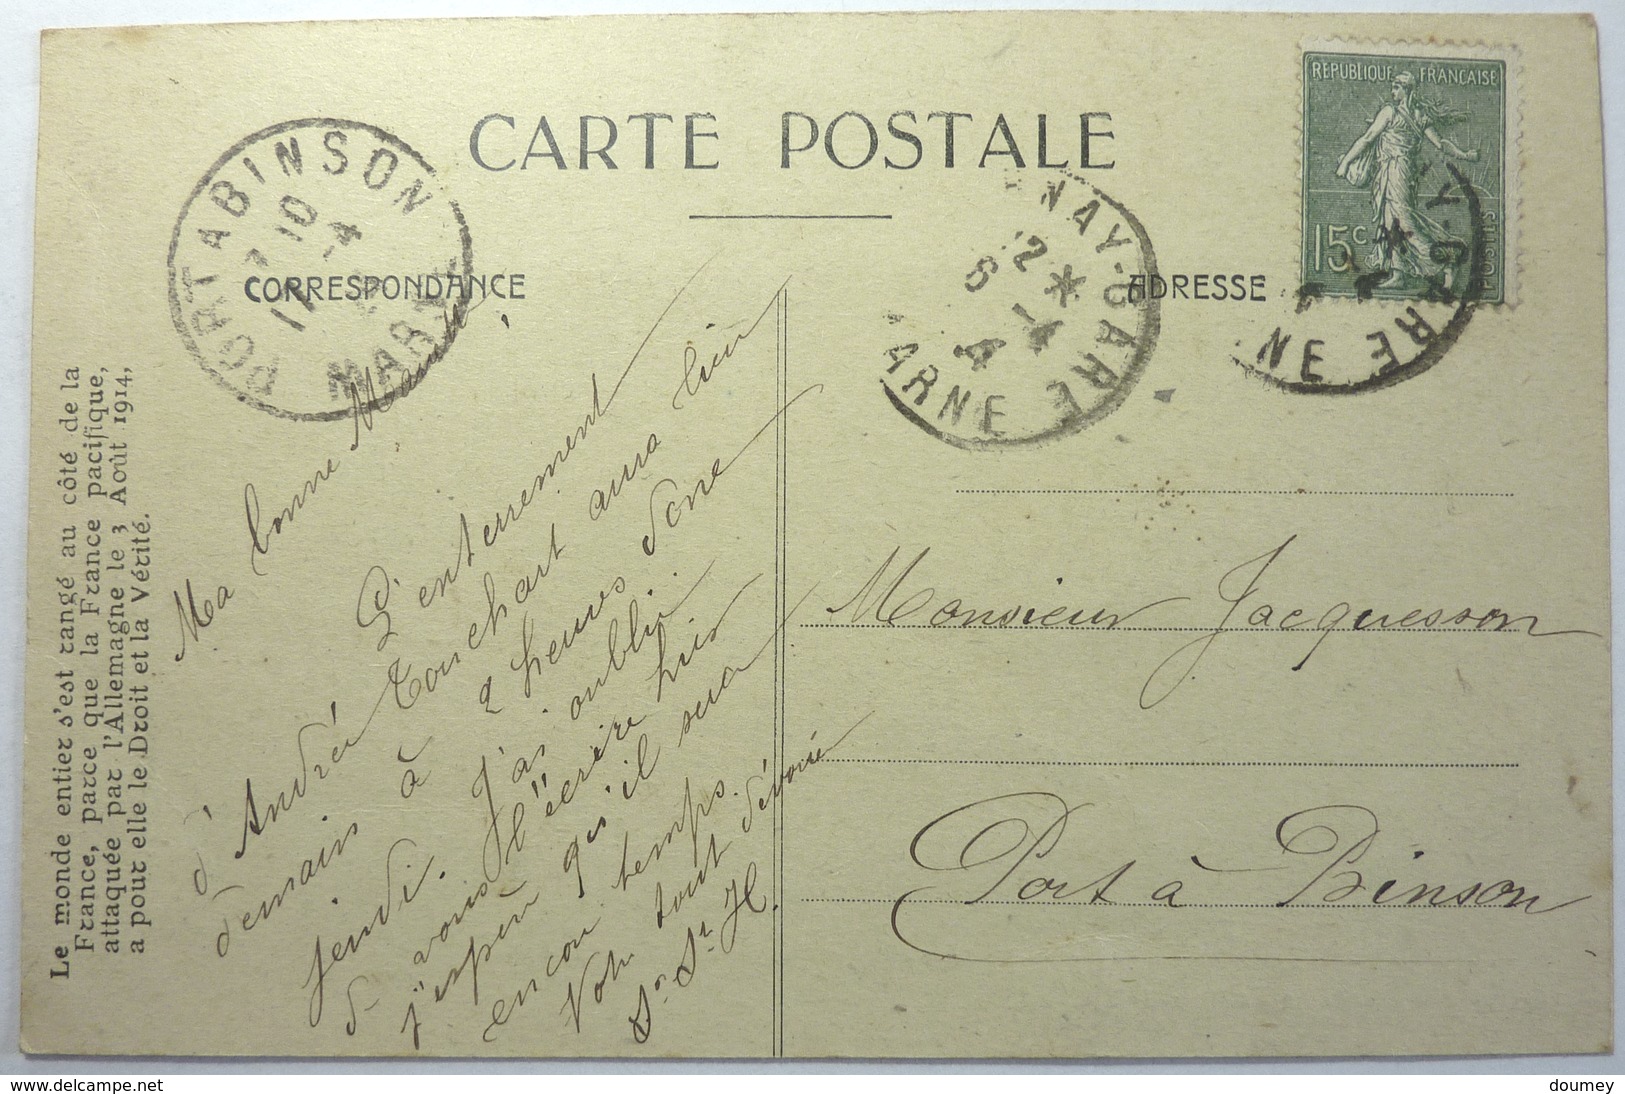 CARTE POSTALE
CORRESPONDANCE
ADRESSE
REPUBLIQUE FRANCAISE
15c
POSTES
PORT A BINSON
7 10
11 -4
MARNE
NAY-GARE
12 *
6 -4
4
ARNE
Y-GARE
NE
Le monde entier s'est rangé au côté de la
France, parce que la France pacifique,
attaquée par l'Allemagne le 3 Août 1914,
a pour elle le Droit et la Vérité.
Ma bonne
L'enterrement
d'André Touchart aura lieu
demain à 2 heures donc
jeudi. J'ai oublié
de vous l'écrire hier
j'espère qu'il sera
encore temps.
Votre tout dévoué
St. H.
Monsieur Jacquesson
Port à Binson
delcampe.net
doumey